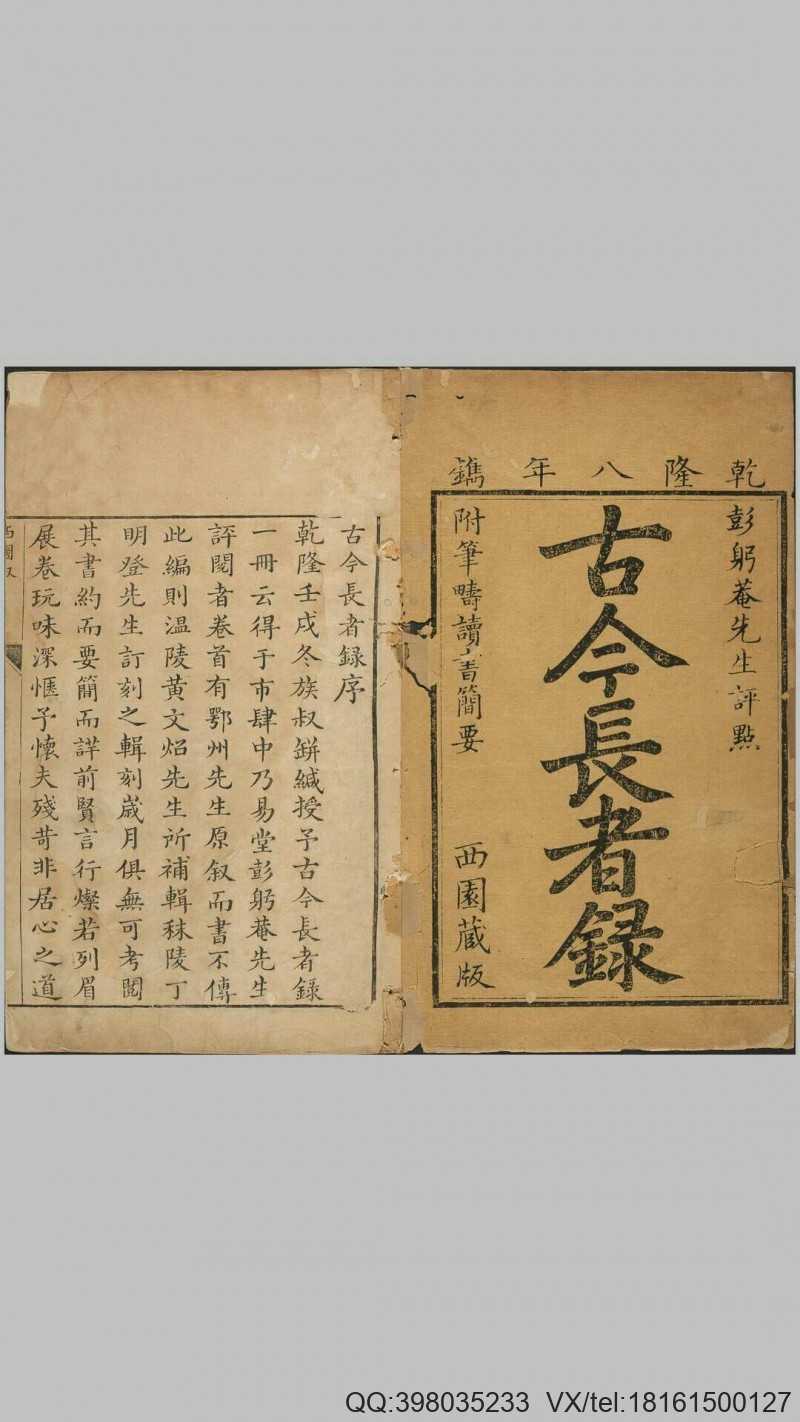 乾隆八年鐫
彭躬菴先生評點
古今長者録
附筆疇讀書簡要
西園蔵版
古今長者録序
乾隆壬戌冬族叔缾緘授予古今長者録
一冊云得于市肆中乃易堂彭躬菴先生
評閱者卷首有鄂州先生原叙而書不傳
此編則温陵黄文炤先生所補輯秣陵丁
明登先生訂刻之輯刻嵗月俱無可考閱
其書約而要簡而詳前賢言行燦若列眉
展卷玩味深愜予懷夫殘苛非居心之道
QQ:398035233 VX/tel:18161500127